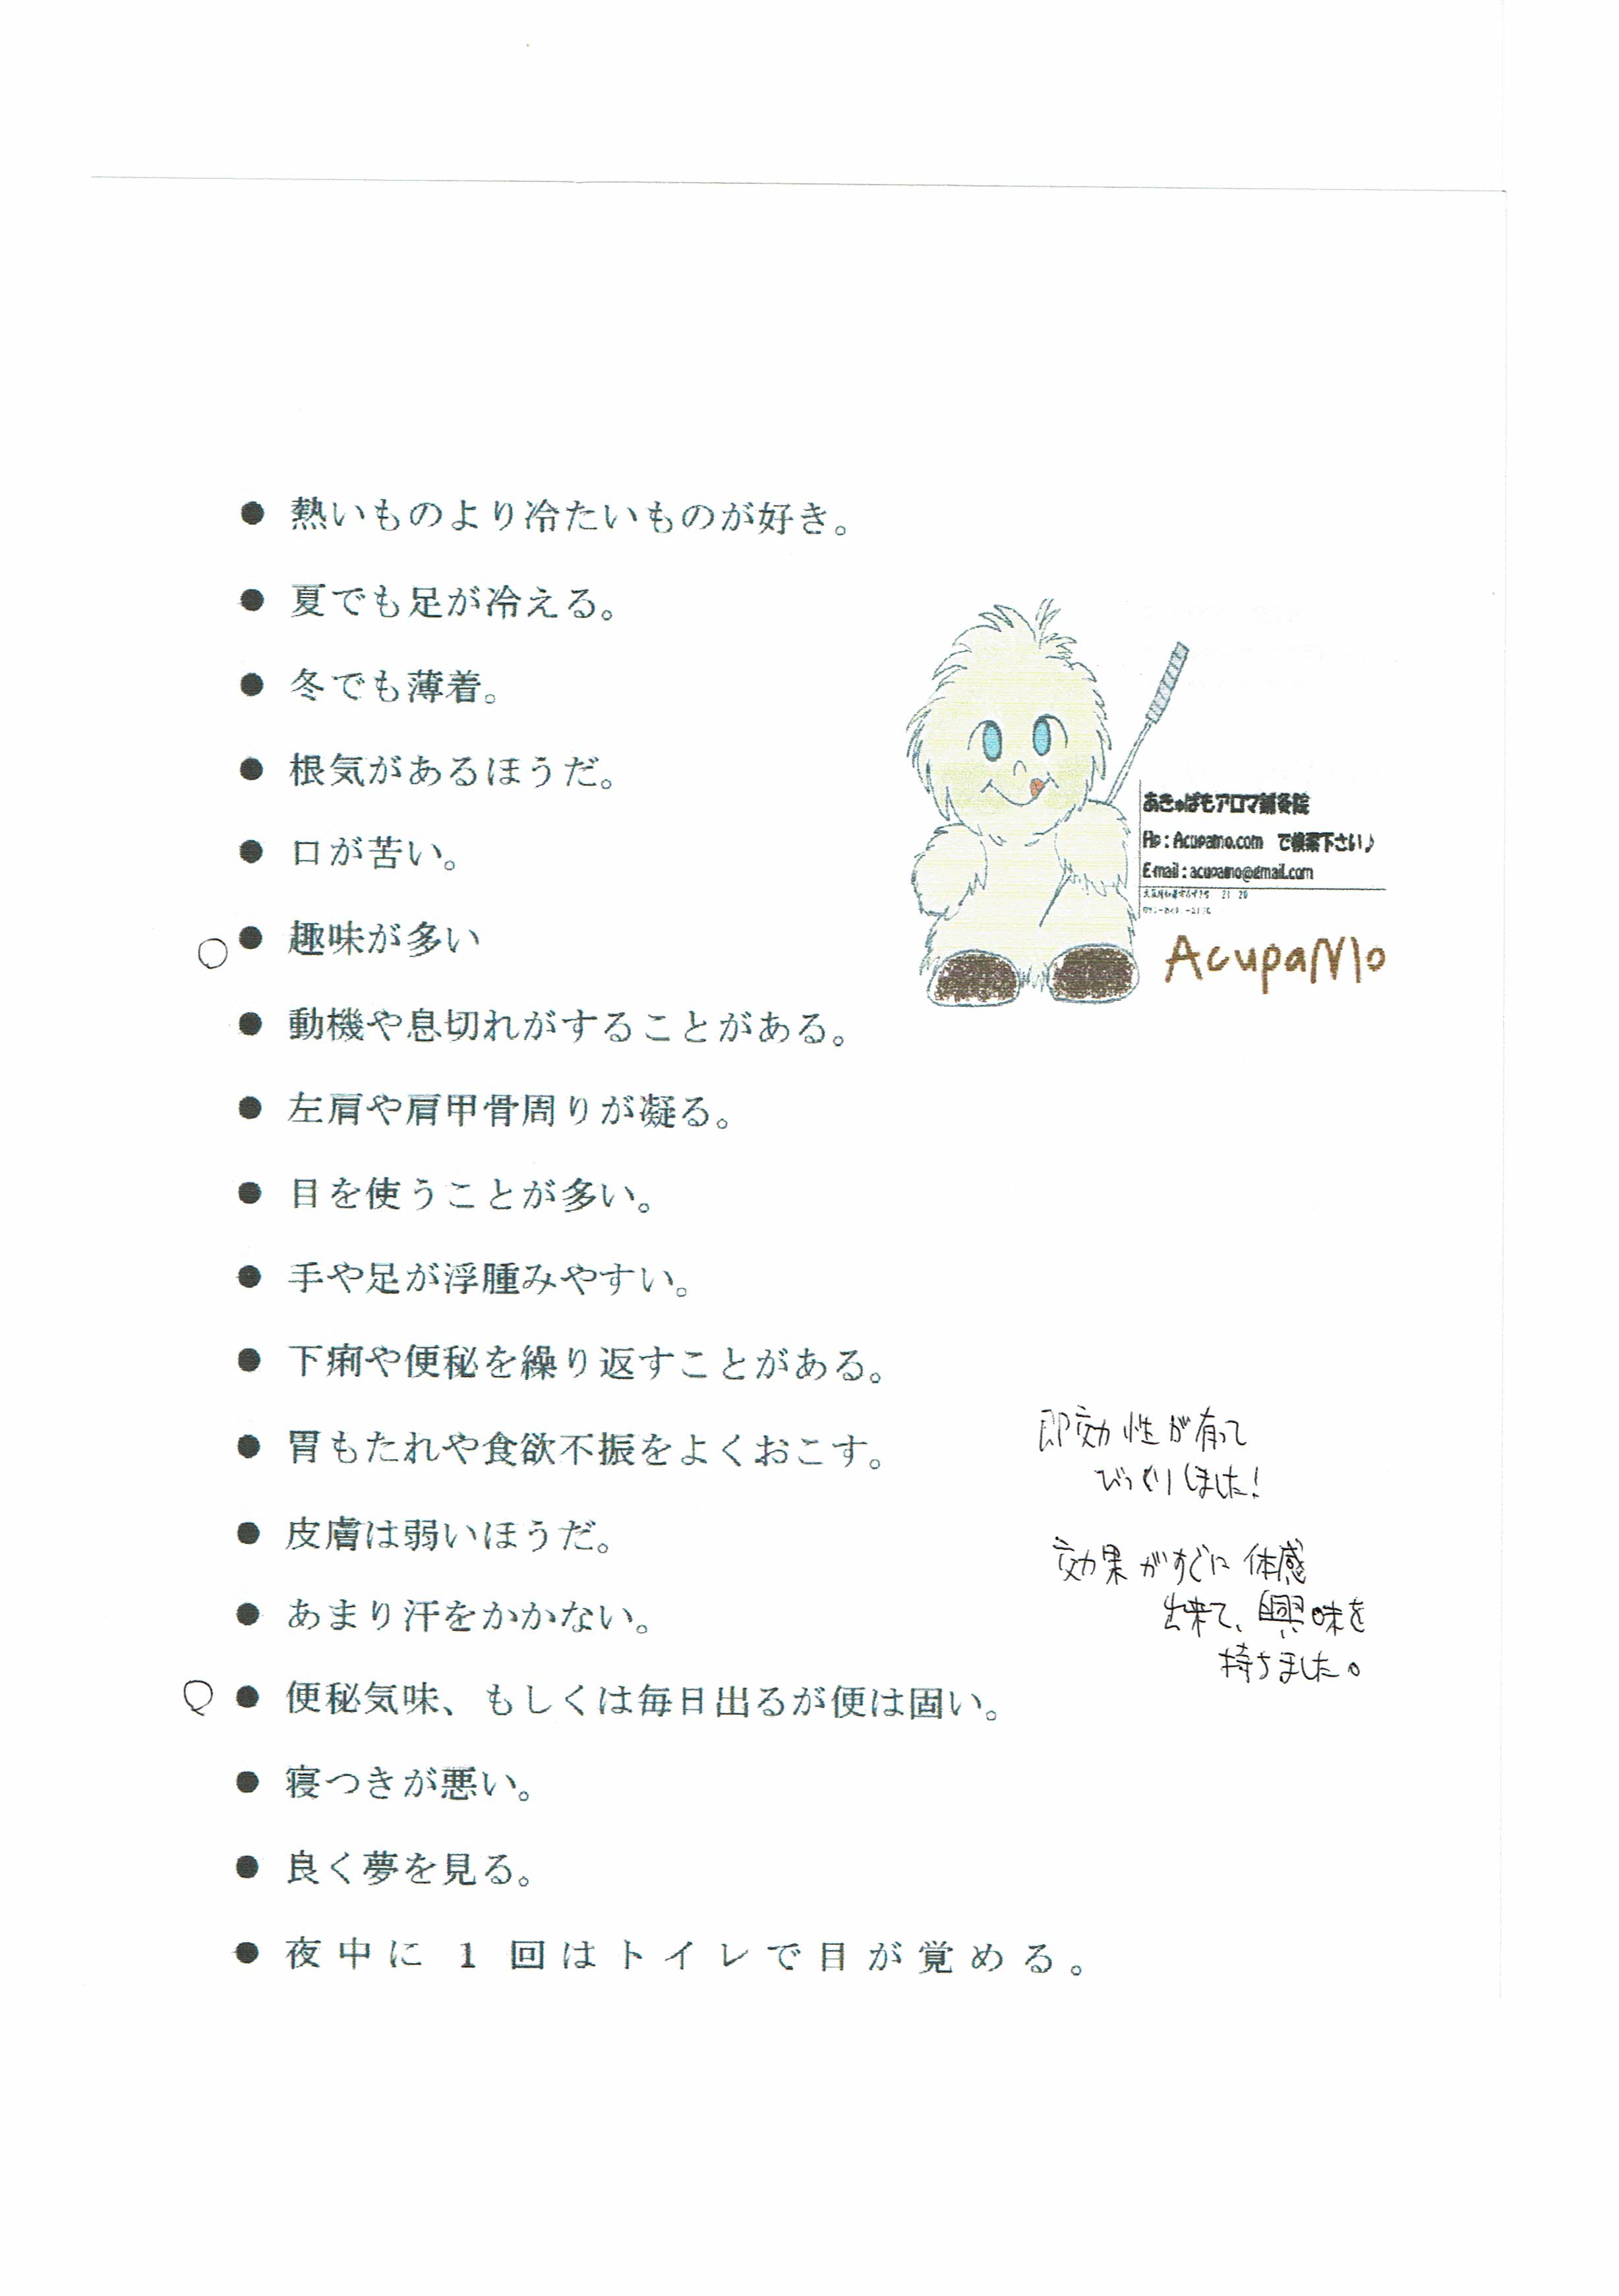 ● 熱いものより冷たいものが好き。
● 夏でも足が冷える。
● 冬でも薄着。
● 根気があるほうだ。
● 口が苦い。
○ ● 趣味が多い
● 動機や息切れがすることがある。
● 左肩や肩甲骨周りが凝る。
● 目を使うことが多い。
● 手や足が浮腫みやすい。
● 下痢や便秘を繰り返すことがある。
● 胃もたれや食欲不振をよくおこす。
● 皮膚は弱いほうだ。
● あまり汗をかかない。
○ ● 便秘気味、もしくは毎日出るが便は固い。
● 寝つきが悪い。
● 良く夢を見る。
● 夜中に1回はトイレで目が覚める。
あきゅぱもアロマ鍼灸院
Hp : Acupamo.com で検索下さい♪
E-mail : acupamo@gmail.com
AcupaMo
即効性が有って
びっくりしました!
効果がすぐに体感
出来て、興味を
持ちました。